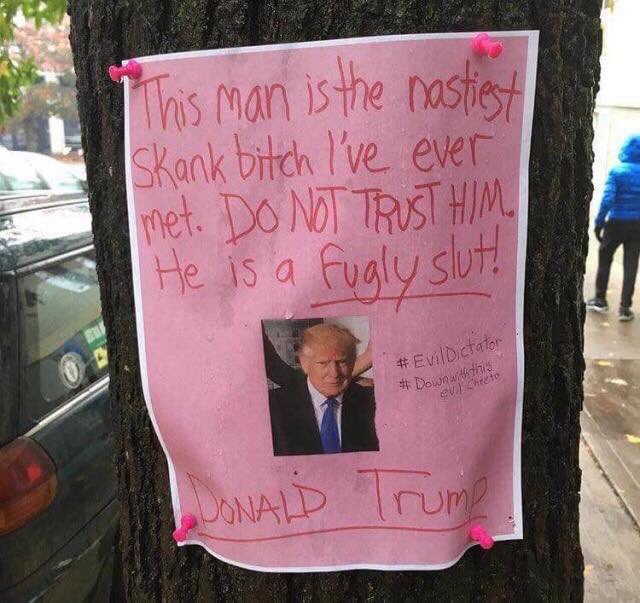 This man is the nastiest
skank bitch I've ever
met. DO NOT TRUST HIM.
He is a fugly slut!
# EvilDictator
# Downwiththis
evil Cheeto
DONALD Trump